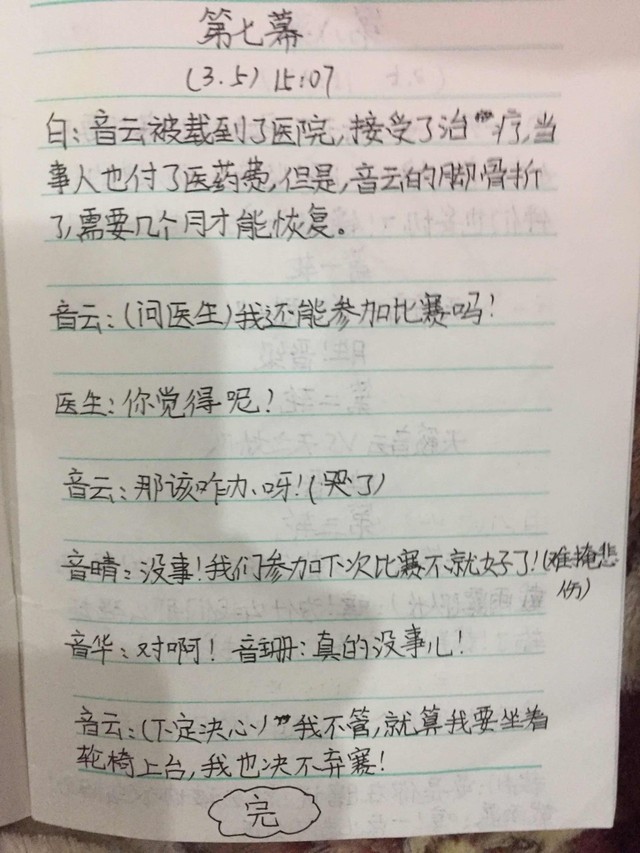 第七幕
(3.5) 15:07
白：音云被载到了医院，接受了治疗，当
事人也付了医药费，但是，音云的脚骨折
了，需要几个月才能恢复。
音云：(问医生)我还能参加比赛吗！
医生：你觉得呢！
音云：那该咋办呀！(哭了)
音晴：没事！我们参加下次比赛不就好了！(难掩悲
伤)
音华：对啊！ 音珊：真的没事儿！
音云：(下定决心)我不管，就算我要坐着
轮椅上台，我也决不弃赛！
完